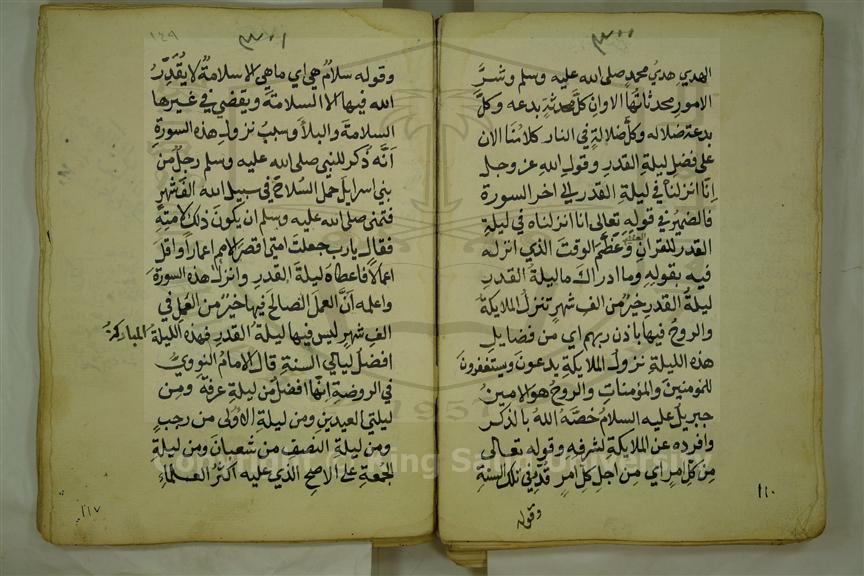 الهدي هديُ محمدٍ صلى الله عليه وسلم وشرَّ
الامورِ محدثاتُها الاوان كلَّ محدثةٍ بدعه وكلَّ
بدعة ضلاله وكلَّ ضلالةٍ في النار كلامُنا الان
على فضلِ ليلةِ القدرِ وقولِ اللهِ عز وجل
اِنا انزلناهُ في ليلةِ القدرِ الي اخر السورة
فالضميرُ في قولهِ تعالى انا انزلناه في ليلةِ
القدر للقرانِ وعَظَّمَ الوقتَ الذي انزله
فيه بقولهِ وما ادراك ما ليلةُ القدرِ
ليلةُ القدر خيرٌ من الفِ شهرٍ تنزلُ الملايكةُ
والروحُ فيها باذن ربهم اي من فضايلِ
هذه الليلةِ نزولُ الملايكةِ يدعونَ ويستغفرون
للمؤمنينَ والمؤمناتِ والروحُ هو الامينُ
جبريلُ عليه السلامُ خصَّهُ اللهُ بالذكرِ
وافرده عن الملايكةِ لشرفهِ وقوله تعالى
مِن كلِّ امرٍ اي من اجلِ كلِ امرٍ قدِّرَ في تلك السنةِ
وقوله
١١٠
١٤٩
وقوله سلامٌ هي اي ما هي الا سلامةٌ لا يُقَدِّرُ
الله فيها الا السلامةَ ويقضي في غيرها
السلامةَ والبلاَ وسببُ نزولِ هذه السورةِ
اَنَّه ذُكر للنبي صلى الله عليه وسلم رجلٌ من
بني اسرايلَ حمل السلاحَ في سبيل الله الفَ شهرٍ
فتمنى صلى الله عليه وسلم ان يكونَ ذلك لامتِهِ
فقال يارب جعلتَ امتى اقصرَ الامم اعمارًا واقلَّ
اعمالًا فاعطاه ليلةَ القدرِ وانزل هذه السورةَ
واعلمه اَنَّ العملَ الصالحَ فيها خيرٌ من العملِ في
الفِ شهرٍ ليس فيها ليلةُ القدرِ فهذه الليلةُ المباركةُ
افضلُ ليالي السنةِ قال الامامُ النوويُّ
في الروضةِ انّها افضلُ من ليلةِ عرفة ومِن
ليلتي العيدينِ ومن ليلةِ الاُولى من رجبٍ
ومن ليلةِ النصفِ من شعبانَ ومن ليلةِ
الجُمعةِ على الاصحِ الذي عليه اكثرُ العلماءِ
١١٧
1957
Copyright © King Saud University